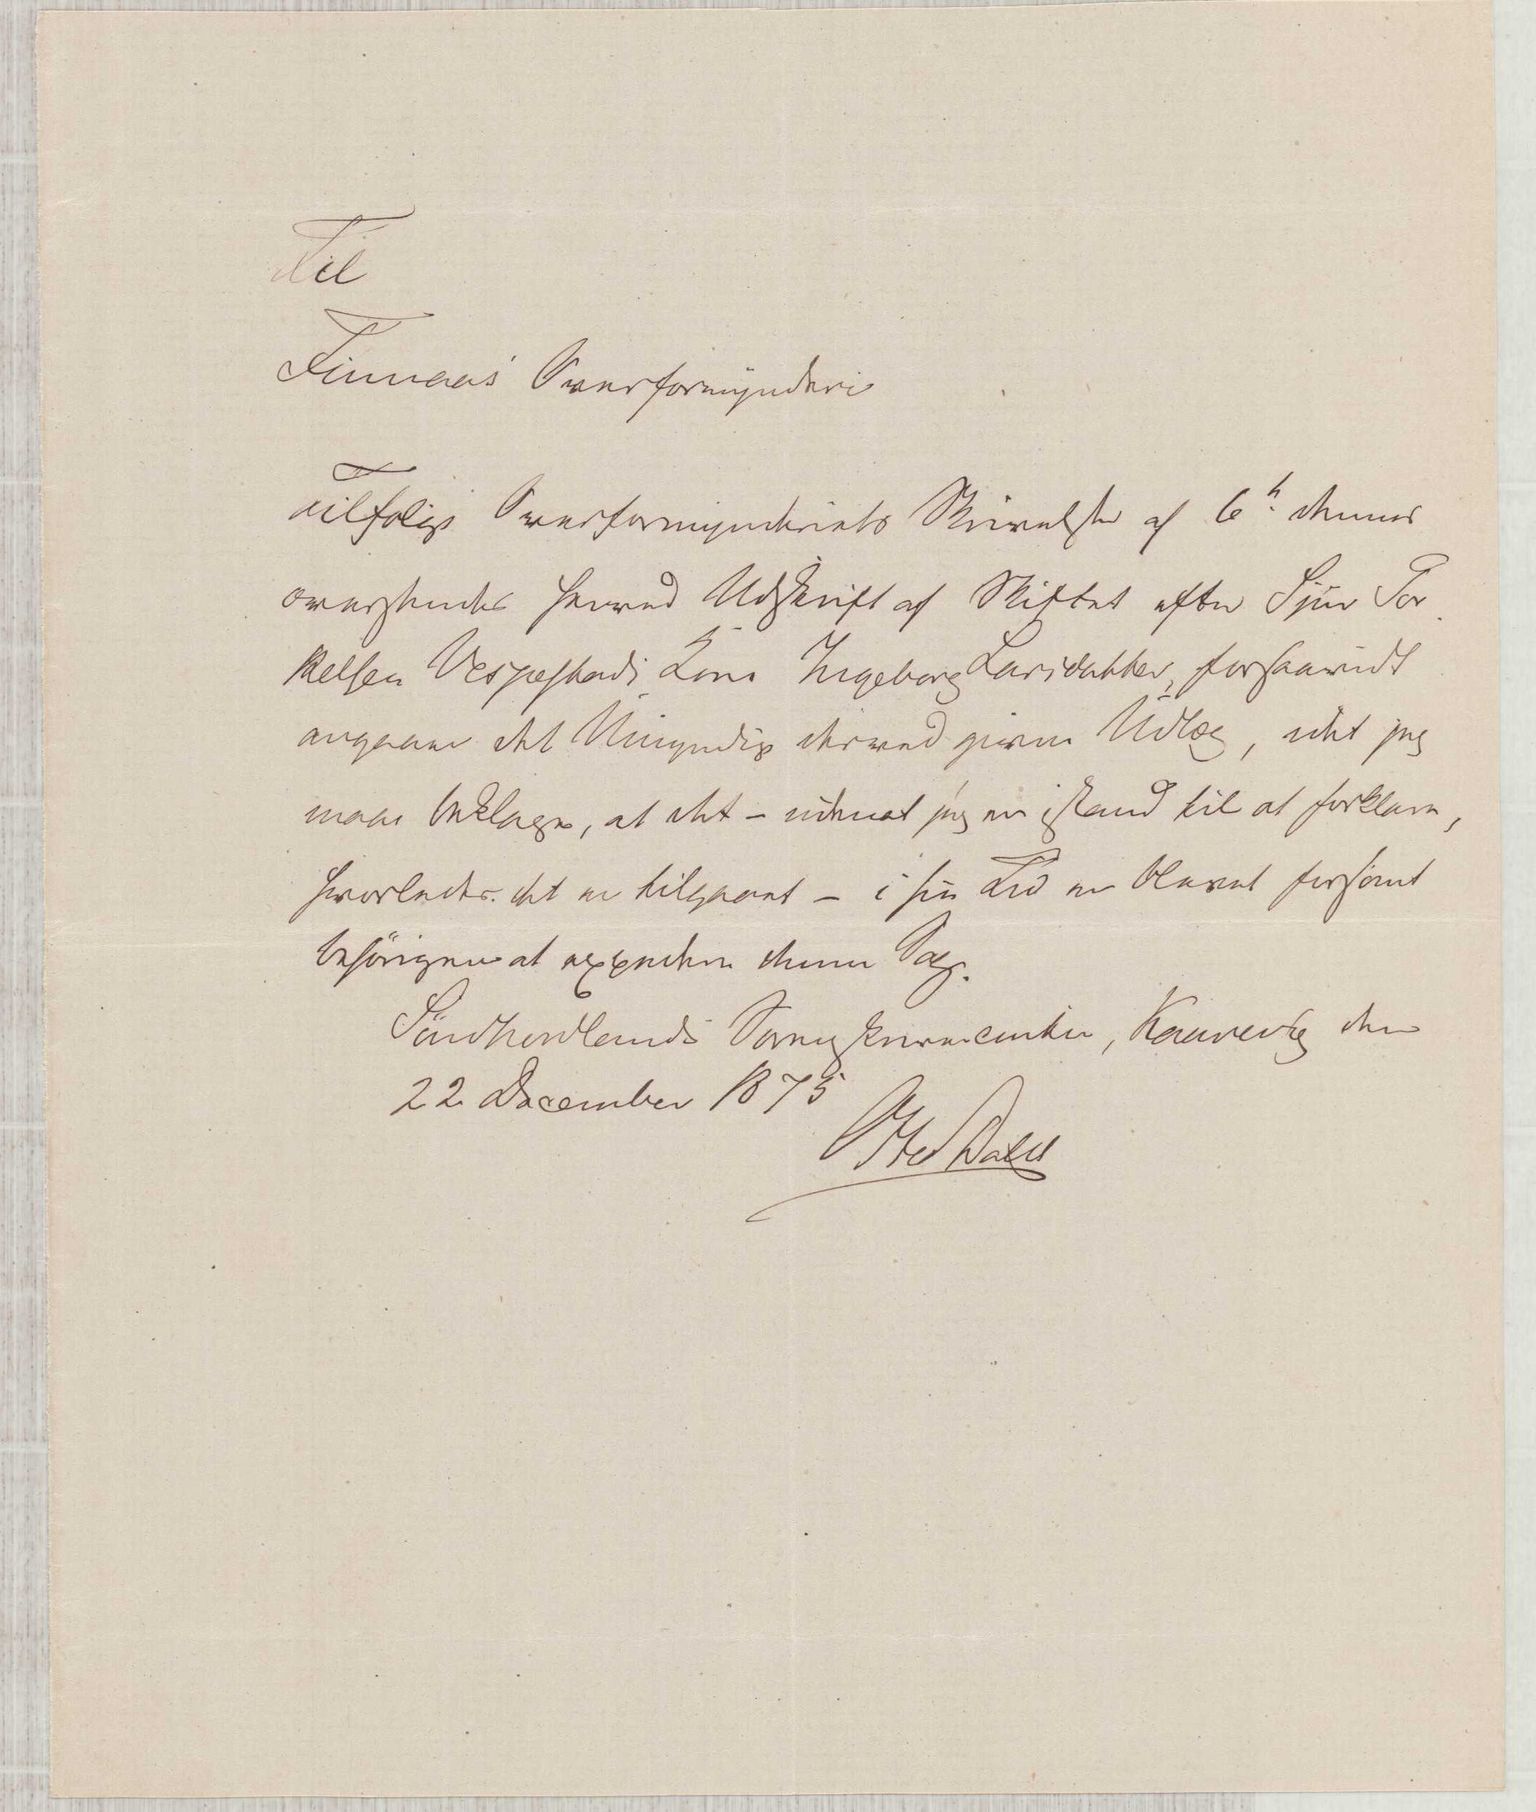 Til
Finnaas Overformynderi
Tilfølge Overformynderiets Skrivelse af 6te dennes
oversendes herved Udskrift af Skiftet efter Sjur Tor
kelsen Vespestads Kone Ingeborg Larsdatter, forsaavidt
angaaer det Umyndige derved givne Udlæg, idet jeg
maa beklage, at det – uden at jeg er istand til at forklare,
hvorledes det er tilgaaet – i sin Tid er blevet forsømt
behørigen at expedere denne Sag.
Søndhordlands Sorenskriverembede, den
22 December 1875
Otto Dahl